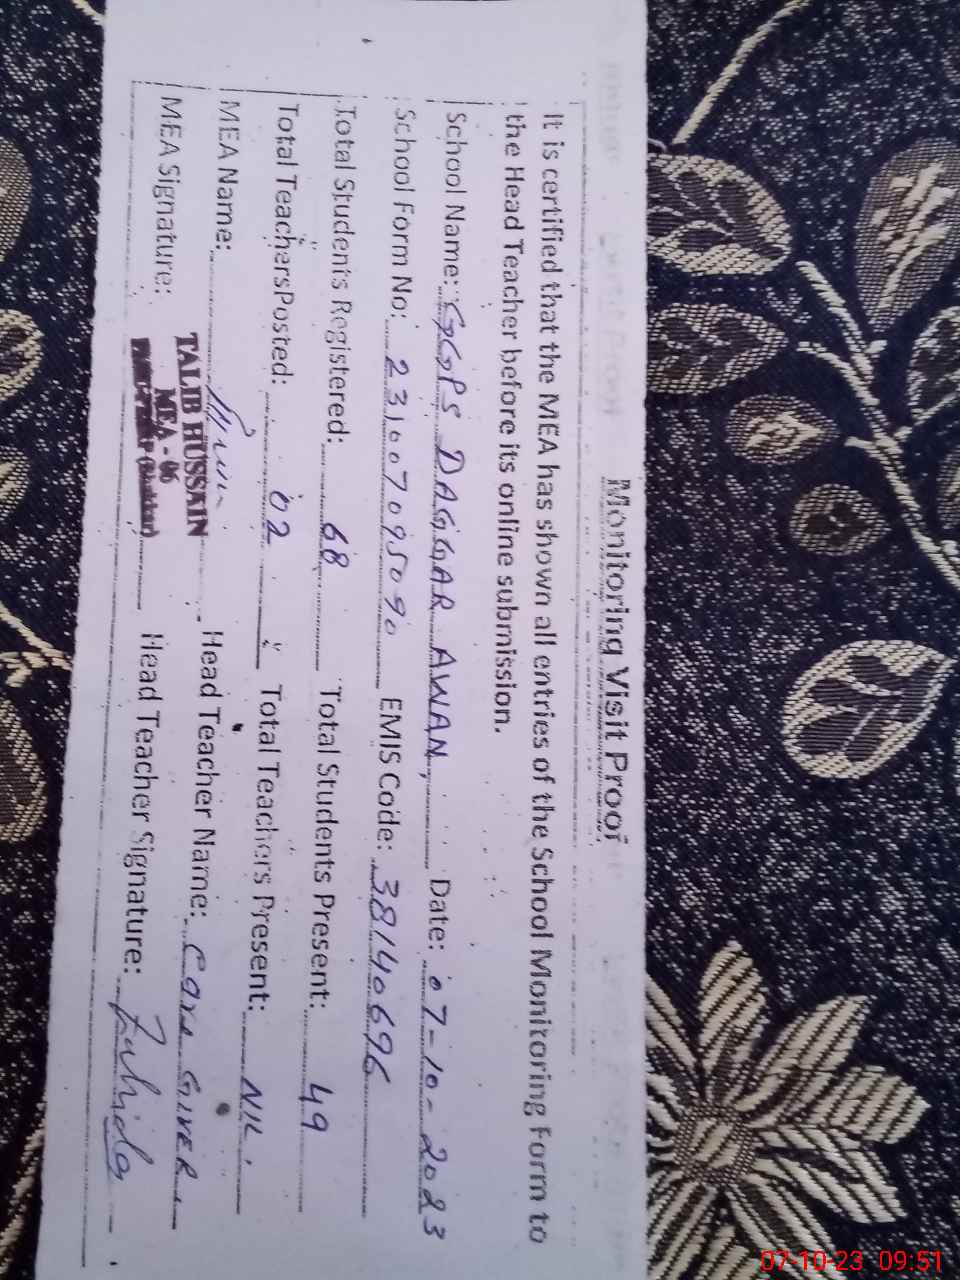 Monitoring Visit Proof
It is certified that the MEA has shown all entries of the School Monitoring Form to
the Head Teacher before its online submission.
School Name: GGPS DAGGAR AWAN Date: 07-10-2023
School Form No: 231007095090 EMIS Code: 38140696
Total Students Registered: 68 Total Students Present: 49
Total Teachers Posted: 02 Total Teachers Present: NIL
MEA Name: Head Teacher Name: Care GIVER
TALIB HUSSAIN
MEA Signature: MEA - 06 Head Teacher Signature: Zahida
07-10-23 09:51